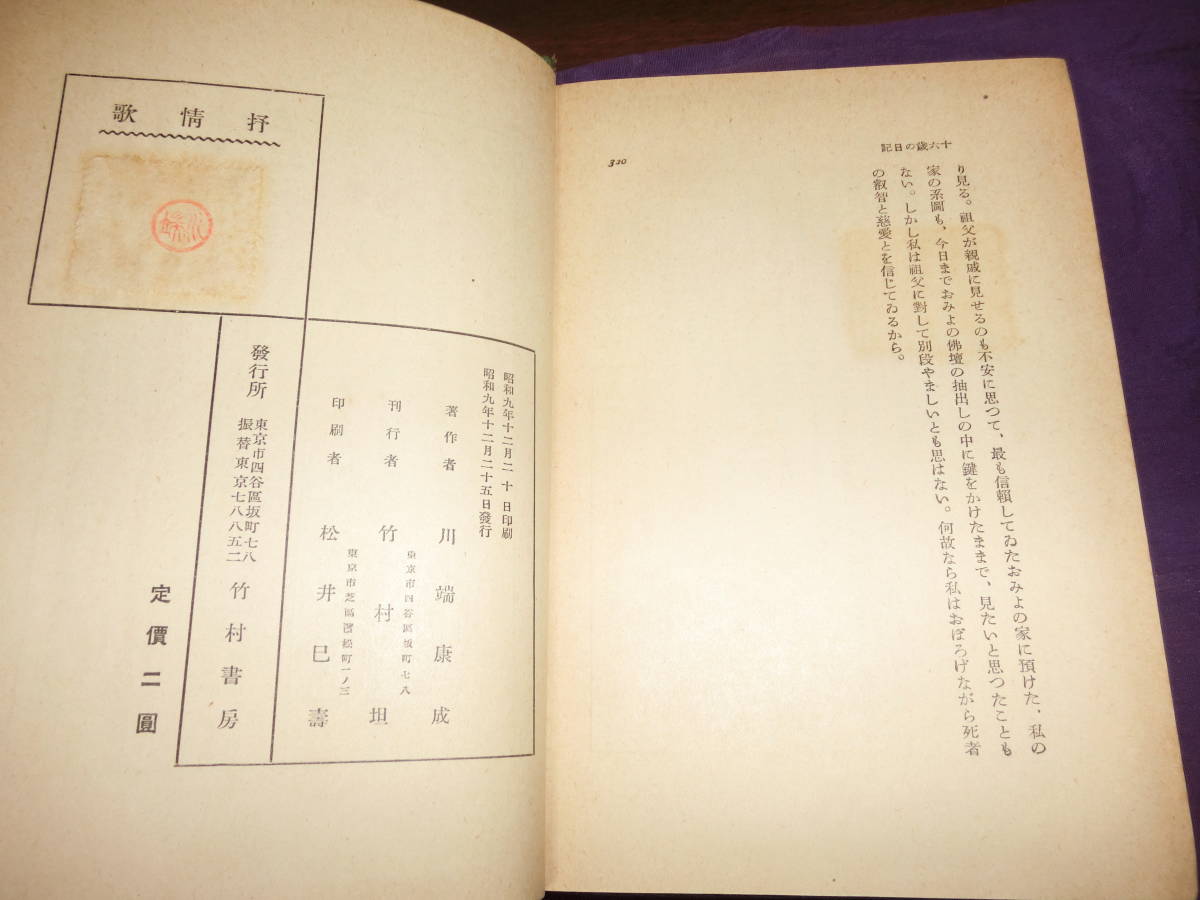 十六歳の日記
320
り見る。祖父が親戚に見せるのも不安に思つて、最も信賴してゐたおみよの家に預けた、私の
家の系圖も、今日までおみよの佛壇の抽出しの中に鍵をかけたままで、見たいと思つたことも
ない。しかし私は祖父に對して別段やましいとも思はない。何故なら私はおぼろげながら死者
の叡智と慈愛とを信じてゐるから。
抒情歌
川端
昭和九年十二月二十日印刷
昭和九年十二月二十五日發行
著作者 川端康成
東京市四谷區坂町七八
刊行者 竹村坦
東京市芝區濱松町一ノ三
印刷者 松井巳壽
發行所
東京市四谷區坂町七八
振替東京七八八五二
竹村書房
定價二圓